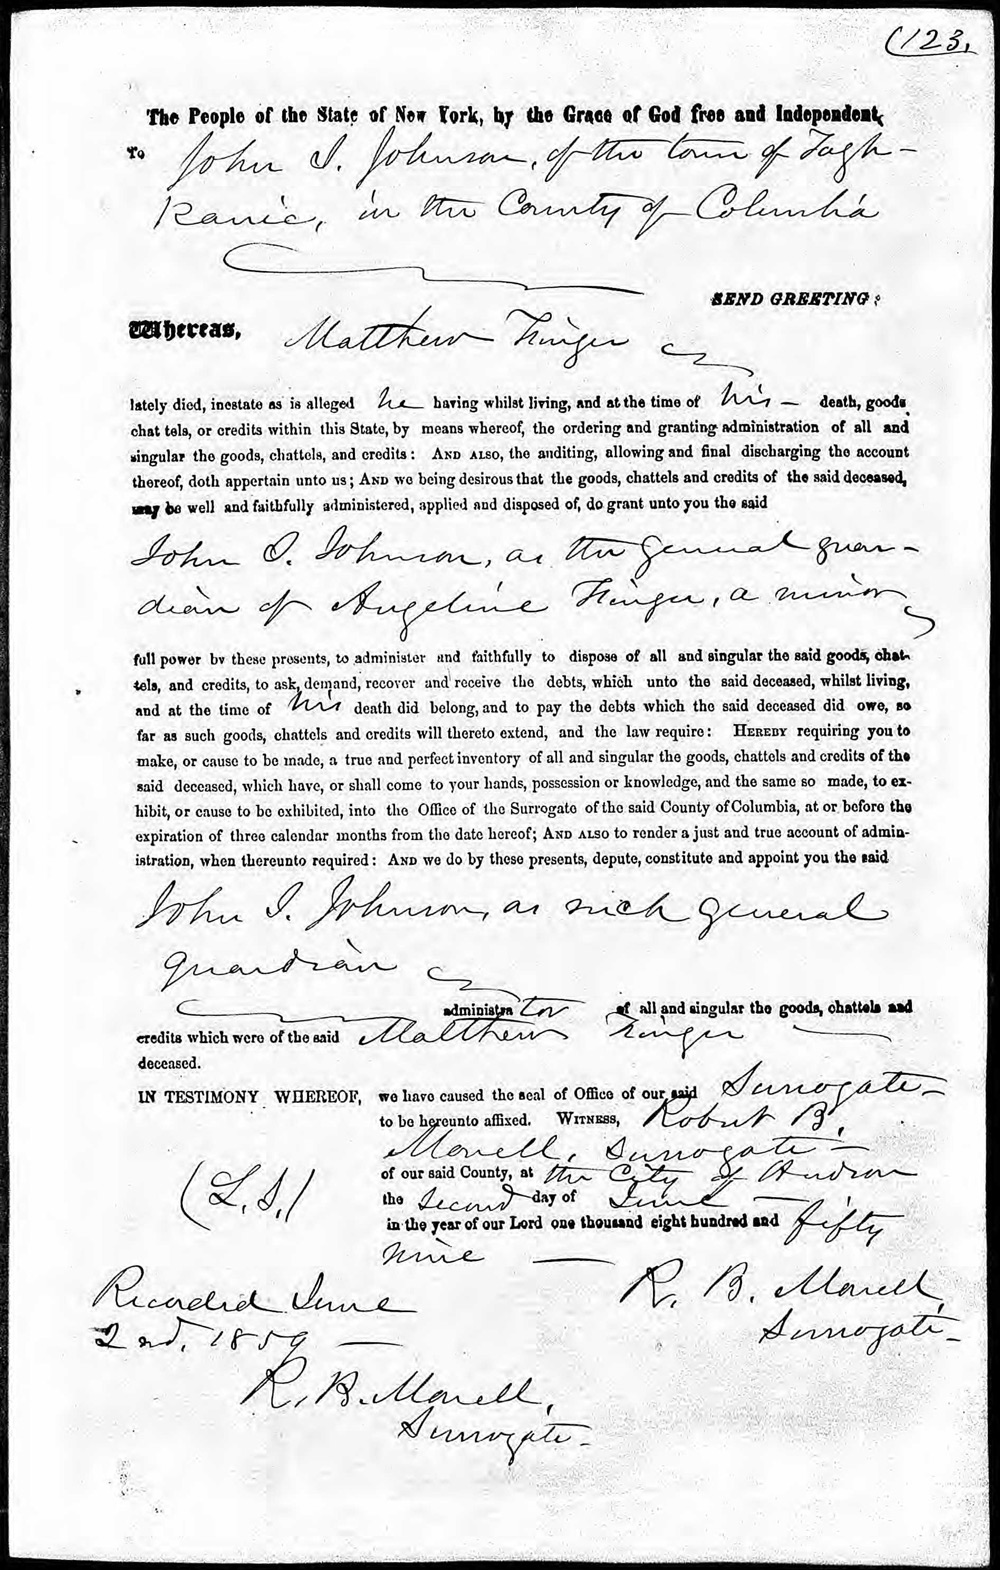 (123.
The People of the State of New York, by the Grace of God free and Independent,
To John I. Johnson, of the town of Tagh-
kanic, in the County of Columbia
SEND GREETING:
Whereas, Matthew Finger
lately died, inestate as is alleged he having whilst living, and at the time of his death, goods,
chat tels, or credits within this State, by means whereof, the ordering and granting administration of all and
singular the goods, chattels, and credits: AND ALSO, the auditing, allowing and final discharging the account
thereof, doth appertain unto us; AND we being desirous that the goods, chattels and credits of the said deceased,
may be well and faithfully administered, applied and disposed of, do grant unto you the said
John I. Johnson, as the general guar-
dian of Angeline Finger, a minor
full power by these presents, to administer and faithfully to dispose of all and singular the said goods, chat-
tels, and credits, to ask, demand, recover and receive the debts, which unto the said deceased, whilst living,
and at the time of his death did belong, and to pay the debts which the said deceased did owe, so
far as such goods, chattels and credits will thereto extend, and the law require: HEREBY requiring you to
make, or cause to be made, a true and perfect inventory of all and singular the goods, chattels and credits of the
said deceased, which have, or shall come to your hands, possession or knowledge, and the same so made, to ex-
hibit, or cause to be exhibited, into the Office of the Surrogate of the said County of Columbia, at or before the
expiration of three calendar months from the date hereof; AND ALSO to render a just and true account of admin-
istration, when thereunto required: AND we do by these presents, depute, constitute and appoint you the said
John I. Johnson, as such general
guardian
administrator of all and singular the goods, chattels and
credits which were of the said Matthew Finger
deceased.
IN TESTIMONY WHEREOF, we have caused the seal of Office of our said Surrogate
to be hereunto affixed. WITNESS, Robert B.
Monell, Surrogate
of our said County, at the City of Hudson
(L.S.) the Second day of June
in the year of our Lord one thousand eight hundred and fifty
nine
R. B. Monell,
Surrogate
Recorded June
2nd, 1859
R. B. Monell,
Surrogate